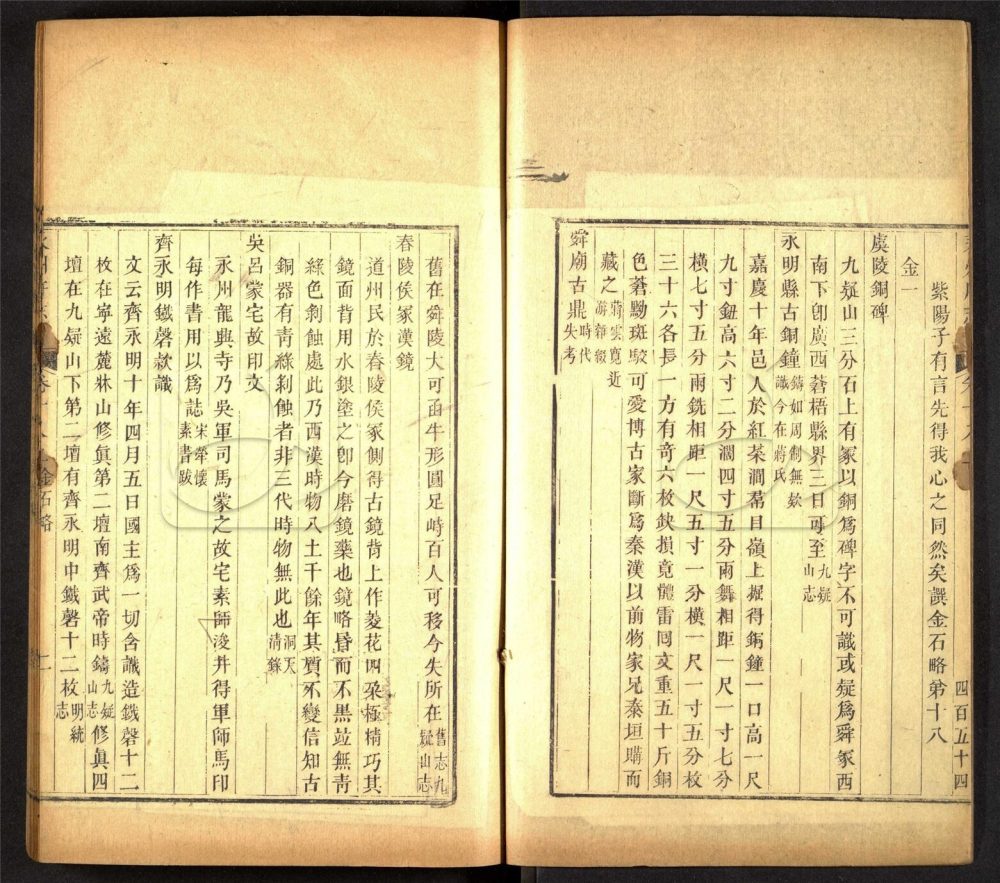 紫陽子有言先得我心之同然矣譔金石略第十八
四百五十四
金一
虞陵銅碑
九疑山三分石上有冢以銅爲碑字不可識或疑爲舜冢西
南下卽廣西蒼梧縣界三日可至九疑山志
永明縣古銅鐘鑄如周制無款識今在蔣氏
嘉慶十年邑人於紅茶澗羃目嶺上掘得銅鐘一口高一尺
九寸鈕高六寸二分濶四寸五分兩舞相距一尺一寸七分
橫七寸五分兩銑相距一尺五寸一分橫一尺一寸五分枚
三十六各長一方有奇六枚缺損竟體雷囘文重五十斤銅
色蒼黝斑駮可愛博古家斷爲秦漢以前物家兄秦垣購而
藏之蔣雲寬近游雜綴
舜廟古鼎時代失考
舊在舜陵大可函牛形圓足峙百人可移今失所在舊志九疑山志
春陵侯冢漢鏡
道州民於春陵侯冢側得古鏡背上作菱花四朶極精巧其
鏡面背用水銀塗之卽今磨鏡藥也鏡略昏而不黑竝無靑
綠色剝蝕處此乃西漢時物入土千餘年其質不變信知古
銅器有靑綠剝蝕者非三代時物無此也洞天淸錄
吳呂蒙宅故印文
永州龍興寺乃吳軍司馬蒙之故宅素師浚井得軍師馬印
每作書用以爲誌宋犖懷素書跋
齊永明鐵磬款識
文云齊永明十年四月五日國主爲一切含識造鐵磬十二
枚在寧遠麓牀山修眞第二壇南齊武帝時鑄九疑山志修眞四
壇在九疑山下第二壇有齊永明中鐵磬十二枚明統志
金石略